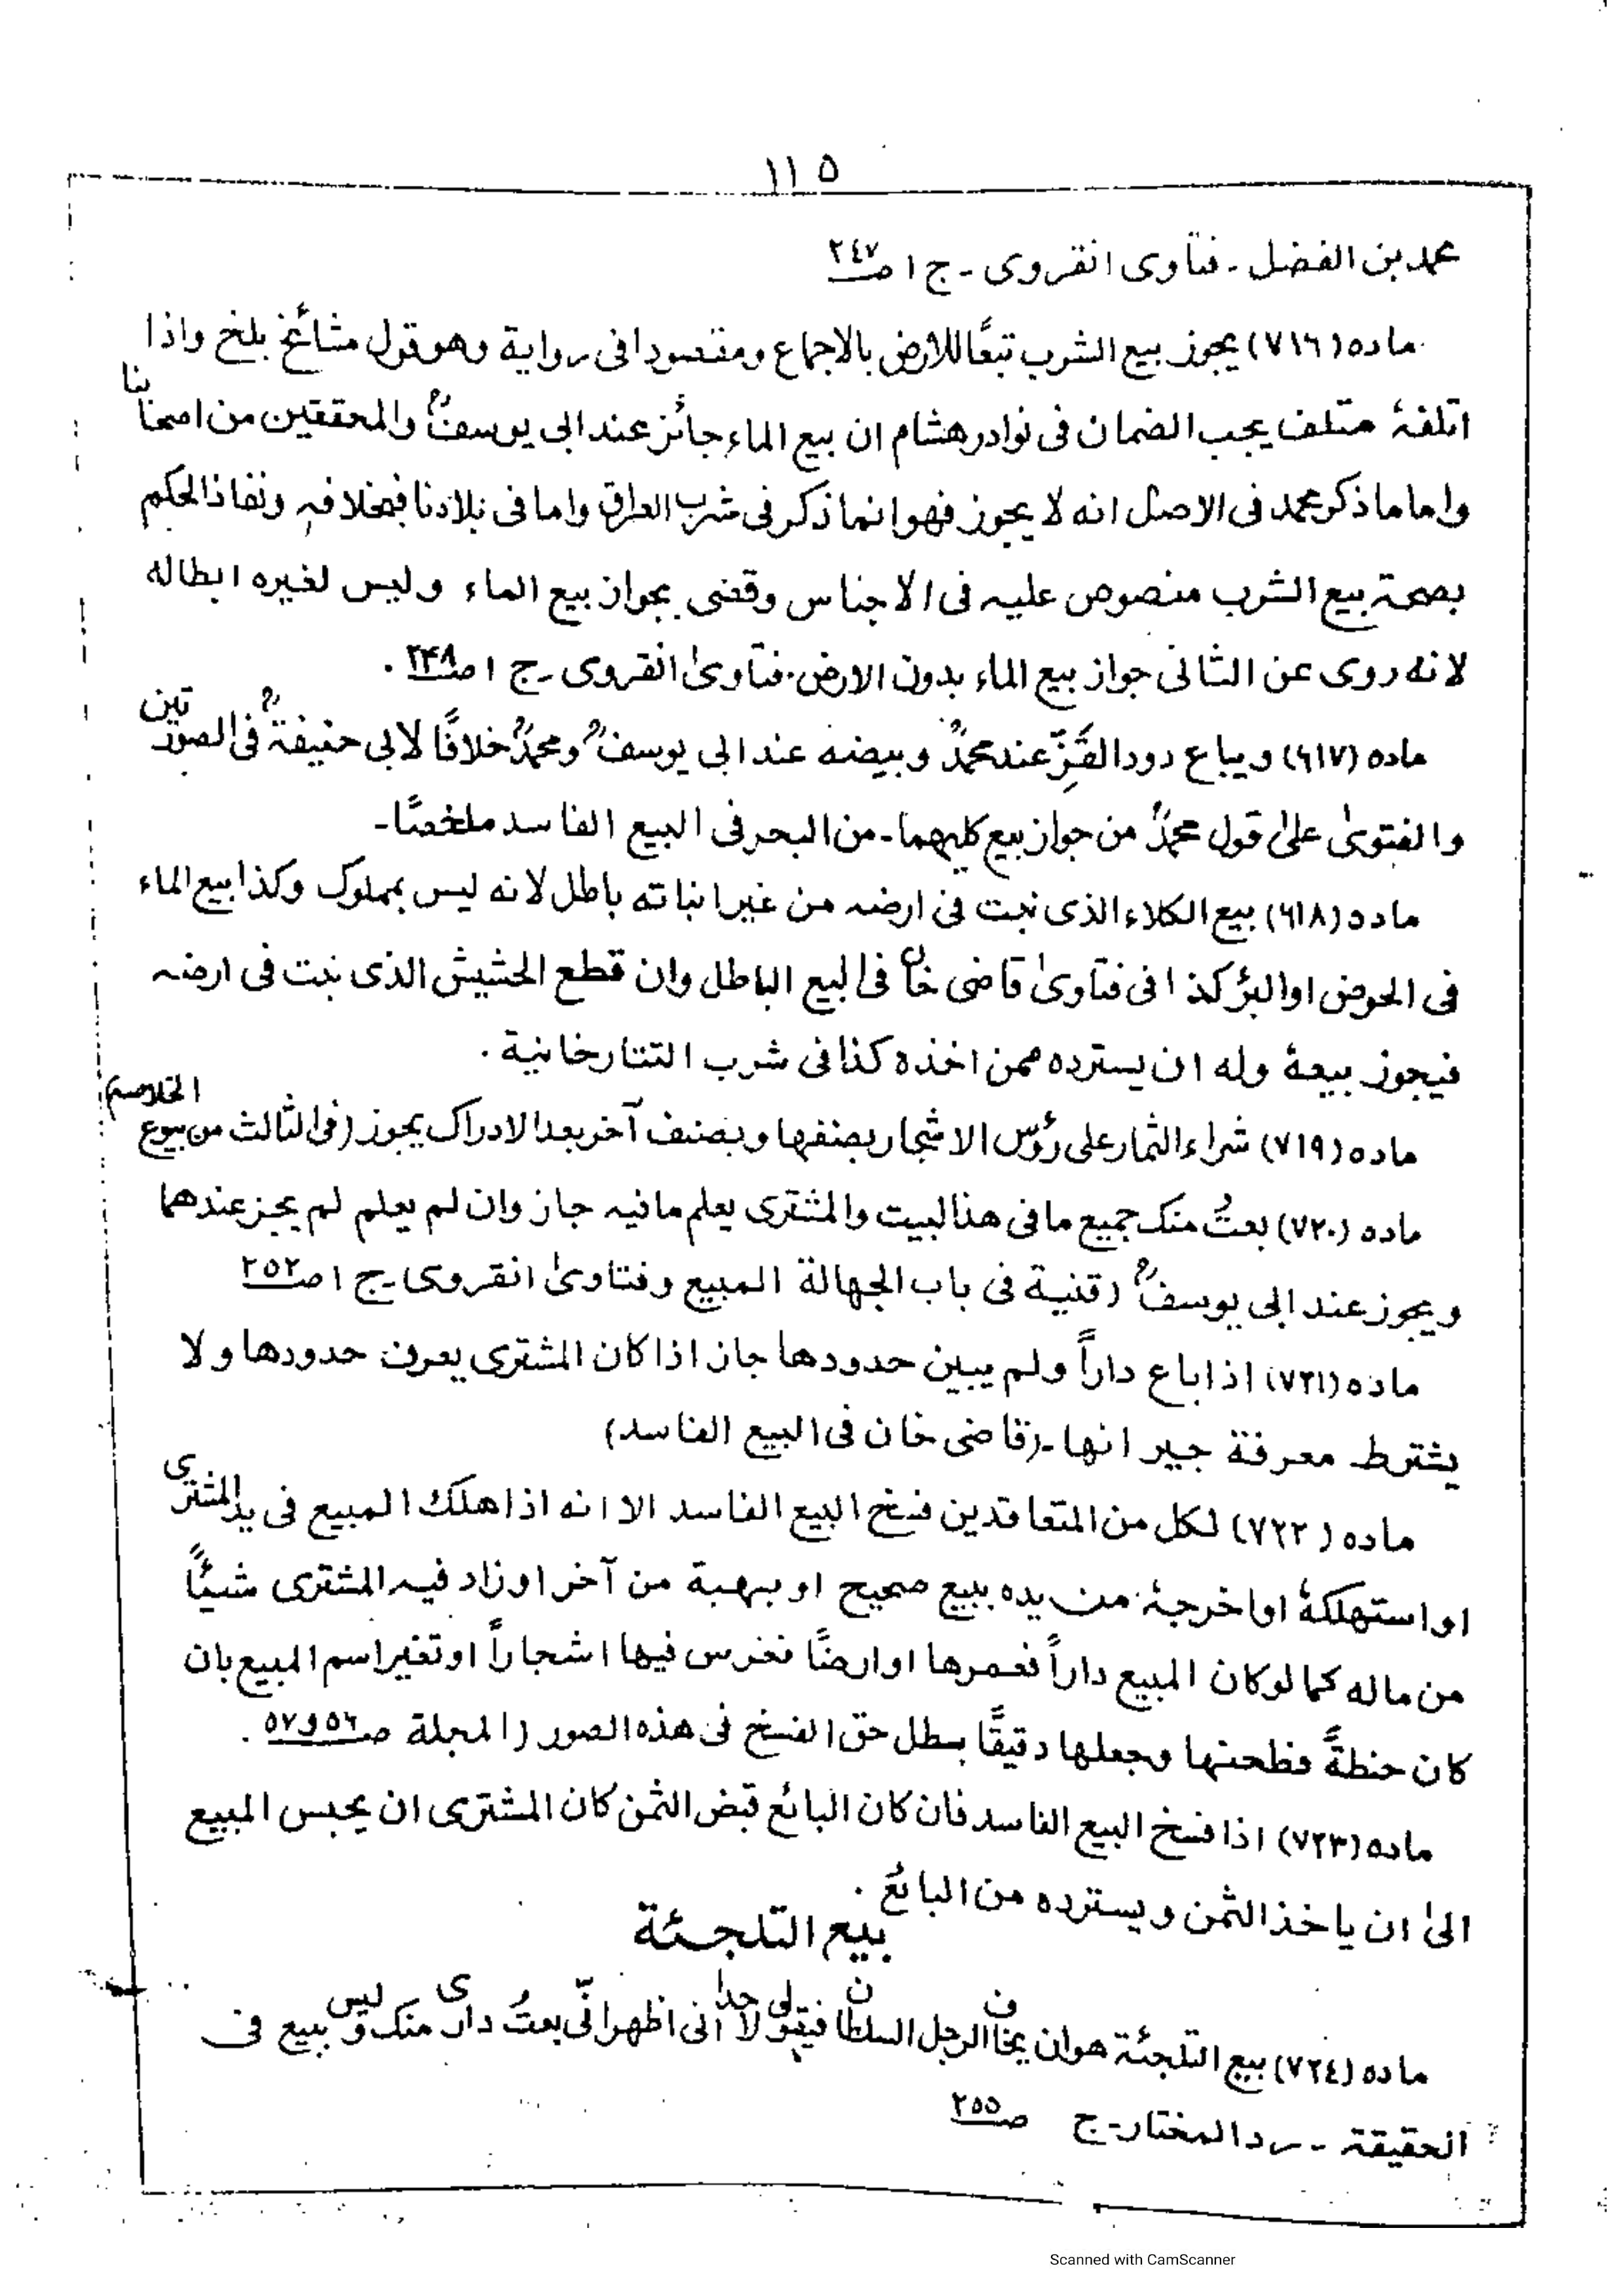 ١١٥
محمد بن الفضل ـ فتاوى انقروى ـ ج ١ صـ٢٤٧
ماده (٧١٦) يجوز بيع الشرب تبعًا للارض بالاجماع ومقصودا فى رواية وهو قول مشائخ بلخ واذا
اتلفهٗ متلف يجب الضمان فى نوادر هشام ان بيع الماء جائز عند ابى يوسفؒ والمحققين من اصحابنا
واما ما ذكر محمد فى الاصل انه لا يجوز فهو انما ذكر فى شرب العراق واما فى بلادنا فبخلافه ونفاذ الحكم
بصحة بيع الشرب منصوص عليه فى الاجناس وقضى بجواز بيع الماء وليس لغيره ابطاله
لانه روى عن الثانى جواز بيع الماء بدون الارض. فتاوىٰ انقروى ـ ج ١ صـ٢٤٨ .
ماده (٦١٧) ويباع دود القَزِّ عند محمدؒ وبيضه عند ابى يوسفؒ ومحمدؒ خلافًا لابى حنيفةؒ فى الصورتين
والفتوىٰ علىٰ قول محمدؒ من جواز بيع كليهما ـ من البحر فى البيع الفاسد ملخصًا ـ
ماده (٦١٨) بيع الكلاء الذى نبت فى ارضه من غير انباته باطل لانه ليس بمملوك وكذا بيع الماء
فى الحوض او البئر كذا فى فتاوىٰ قاضى خان فى البيع الباطل وان قطع الحشيش الذى نبت فى ارضه
فيجوز بيعهٗ وله ان يسترده ممن اخذه كذا فى شرب التتارخانية .
ماده (٧١٩) شراء الثمار على رؤس الاشجار بصنفها وبصنف آخر بعد الادراك يجوز (فى الثالث من بيوع الخلاصه)
ماده (٧٢٠) بعتُ منك جميع ما فى هذا لبيت والمشترى يعلم ما فيه جاز وان لم يعلم لم يجز عندهما
ويجوز عند ابى يوسفؒ (قنية فى باب الجهالة المبيع وفتاوىٰ انقروى ـ ج ١ صـ٢٥٢
ماده (٧٢١) اذا باع داراً ولم يبين حدودها جاز اذا كان المشترى يعرف حدودها ولا
يشترط معرفة جيرانها ـ (قاضى خان فى البيع الفاسد)
ماده (٧٢٢) لكل من المتعاقدين فسخ البيع الفاسد الا انه اذا هلك المبيع فى يد المشترى
او استهلكهٗ او اخرجهٗ من يده ببيع صحيح او بهبة من آخر او زاد فيه المشترى شيئًا
من ماله كما لو كان المبيع داراً فعمرها او ارضًا فغرس فيها اشجاراً او تغير اسم المبيع بان
كان حنطةً فطحنها وجعلها دقيقًا بطل حق الفسخ فى هذه الصور (المجلة صـ٥٦ و ٥٧ .
ماده (٧٢٣) اذا فسخ البيع الفاسد فان كان البائع قبض الثمن كان المشترى ان يحبس المبيع
الىٰ ان ياخذ الثمن ويسترده من البائع .
بيع التلجئة
ماده (٧٢٤) بيع التلجئة هو ان يخاف الرجل السلطان فيقول لاحد انى اظهر انّى بعتُ دارى منك وليس ببيع فى
الحقيقة ـ رد المختار ـ ج صـ٢٥٥
Scanned with CamScanner